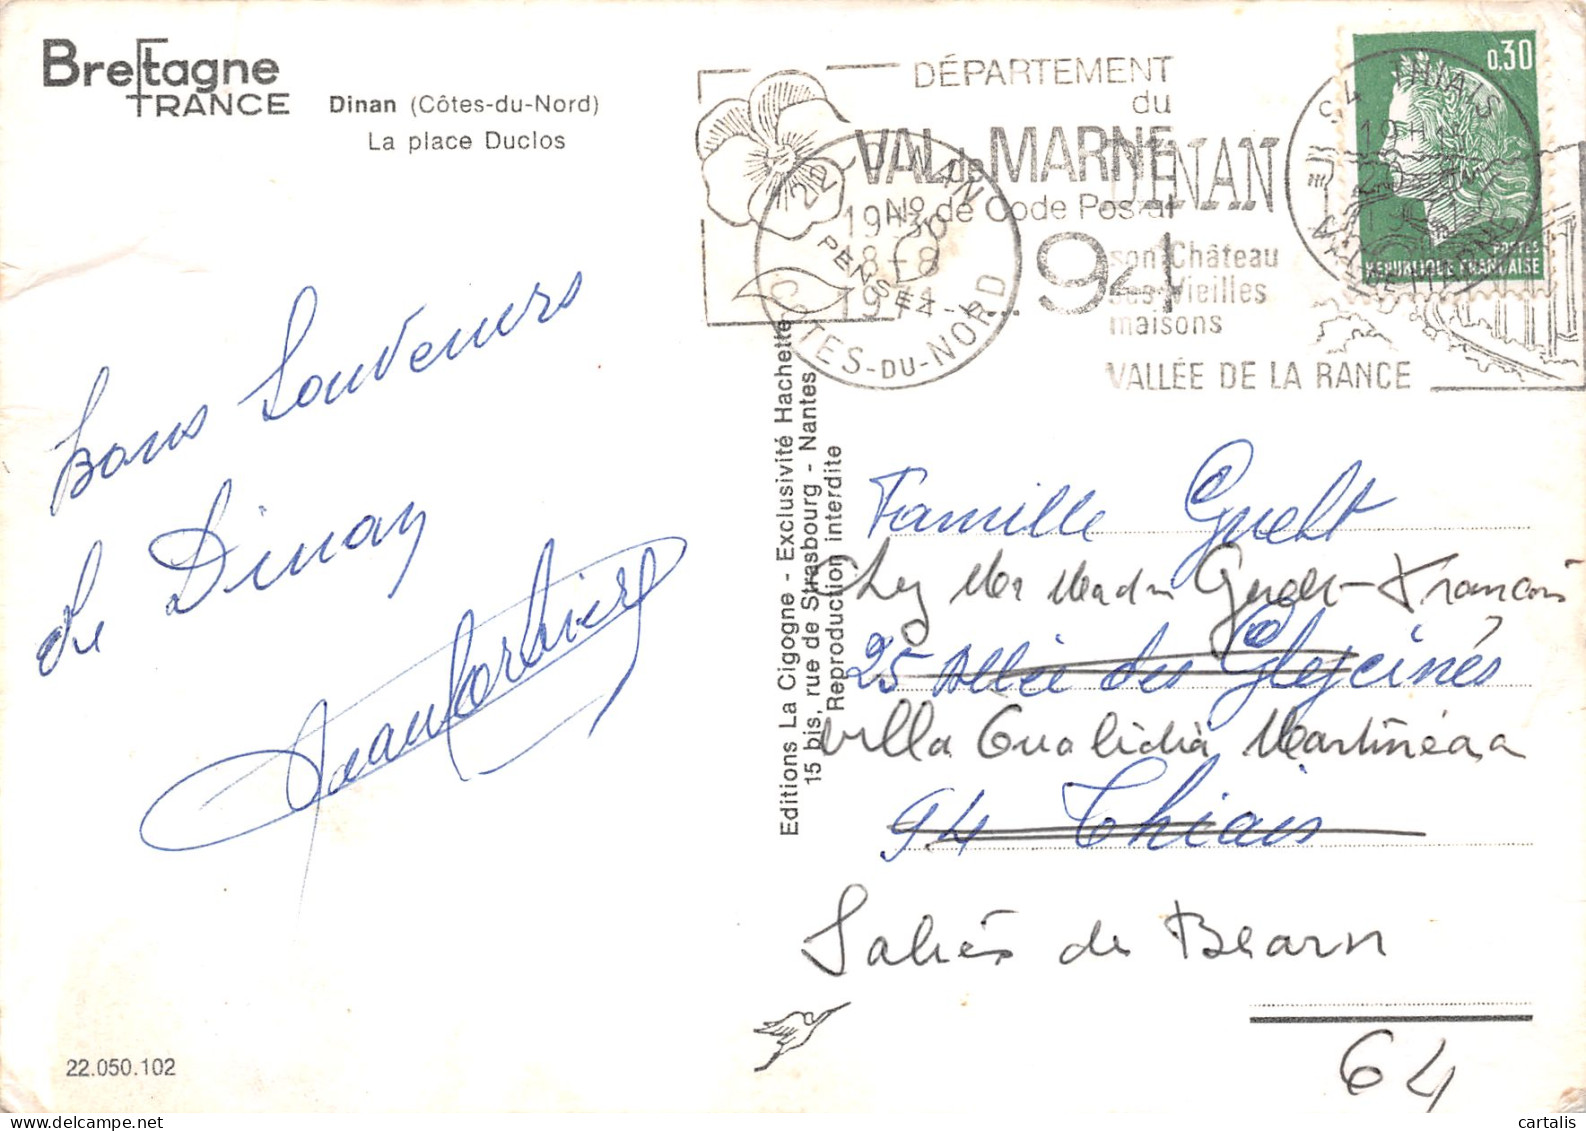 Bretagne
FRANCE
Dinan (Côtes-du-Nord)
La place Duclos
DÉPARTEMENT
du
VAL de MARNE
No de Code Postal
94
PENSEZ-Y...
22 DINAN
19H30
8-8
1974
CÔTES-DU-NORD
DINAN
son Château
ses Vieilles
maisons
VALLÉE DE LA RANCE
94 THIAIS
VAL DE MARNE
0,30
POSTES
REPUBLIQUE FRANÇAISE
Bons Souvenirs
de Dinan
Editions La Cigogne - Exclusivité Hachette
15 bis, rue de Strasbourg - Nantes
Reproduction interdite
Famille Guelt
Chez Mr Madm
25 Allée des Glycines
villa
94 Thiais
Saliès de Bearn
64
22.050.102
cartalis